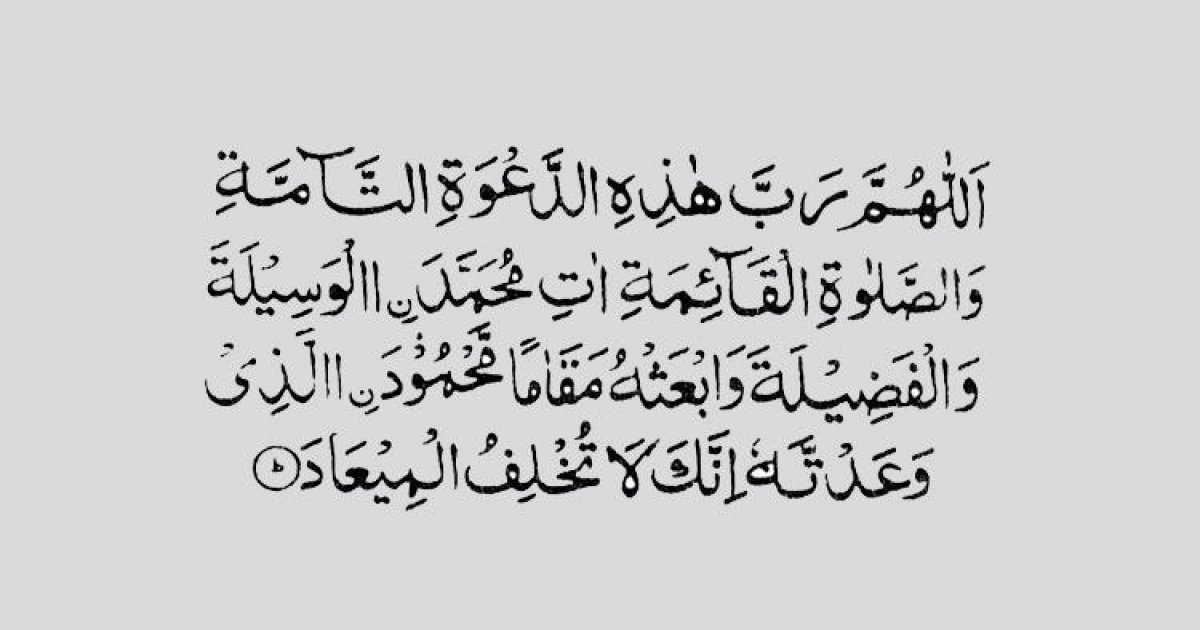 اَللّٰهُمَّ رَبَّ هٰذِهِ الدَّعْوَةِ التَّآمَّةِ
وَالصَّلٰوةِ الْقَآئِمَةِ اٰتِ مُحَمَّدَنِ االْوَسِيْلَةَ
وَالْفَضِيْلَةَ وَابْعَثْهُ مَقَامًا مَّحْمُوْدَنِ االَّذِىْ
وَعَدْتَّهٗ اِنَّكَ لَا تُخْلِفُ الْمِيْعَادَ ۞ؕ